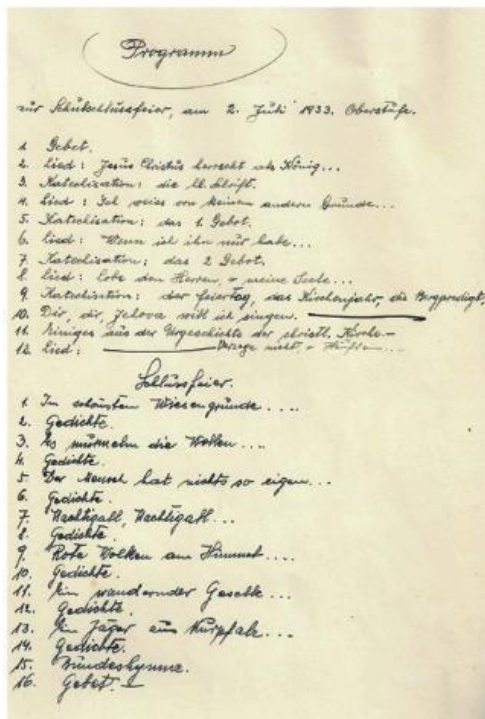 Programm
zur Schulschlussfeier, am 2. Juli 1933. Oberstufe.
1. Gebet.
2. Lied: Jesus Christus herrscht als König...
3. Katechisation: die hl. Schrift.
4. Lied: Ich weiss von keinem andern Grunde...
5. Katechisation: das 1. Gebot.
6. Lied: Wenn ich ihn nur habe...
7. Katechisation; das 2 Gebot.
8. Lied: Lobe den Herren, o meine Seele...
9. Katechisation: der Feiertag, das Kirchenjahr, die Bergpredigt,
10. Dir, dir, Jehova will ich singen.
11. Einiges aus der Urgeschichte der christl. Kirche-
12. Lied: Verzage nicht, o Häuflein...
Schlussfeier.
1. Im schönsten Wiesengrunde....
2. Gedichte.
3. Es murmeln die Wellen....
4. Gedichte.
5. Der Mensch hat nichts so eigen...
6. Gedichte.
7. Nachtigall, Nachtigall...
8. Gedichte.
9. Rote Wolken am Himmel....
10. Gedichte.
11. Ein wandernder Geselle...
12. Gedichte.
13. Ein Jäger aus Kurpfalz...
14. Gedichte.
15. Bundeshymne.
16. Gebet.